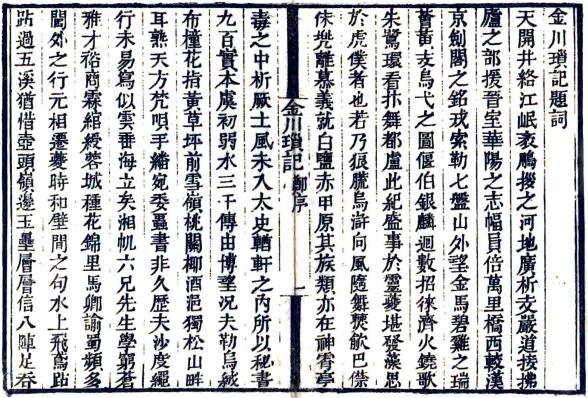 金川瑣記題詞
天開井絡江岷表鵬援之河地廣析支嚴道接拂
廬之部援晉室華陽之志幅員倍萬里橋西較漢
京劍閣之銘戍索勒七盤山外望金馬碧雞之瑞
菁黃支烏弋之圖偃伯銀麟迴數招徠濟火鐃歌
朱鷺環看抃舞都盧此紀盛事於靈夔堪發藻思
於虎僕者也若乃狼䑋烏滸向風隨舞僰歈巴僸
侏兜離慕義就白鹽赤甲原其族類亦在神宵亭
毒之中析厥土風未入太史輶軒之內所以秘書
九百實本虞初弱水三千傳由博望况夫勒烏絨
布橦花指黃草坪前雪嶺桃關椰酒浥獨松山畔
耳熟天方梵唄手繙宛委靈書非久歷夫沙度繩
行未易寫似雲垂海立矣湘帆六兄先生學窮蒼
雅才裕商霖綰綬蓉城種花錦里馬卿諭蜀頻多
閫外之行元相還夔時和壁間之句水上飛鳶跕
跕過五溪猶惜壺頭嶺邊玉壘層層信八陣足吞
金川瑣記
鄭序
一